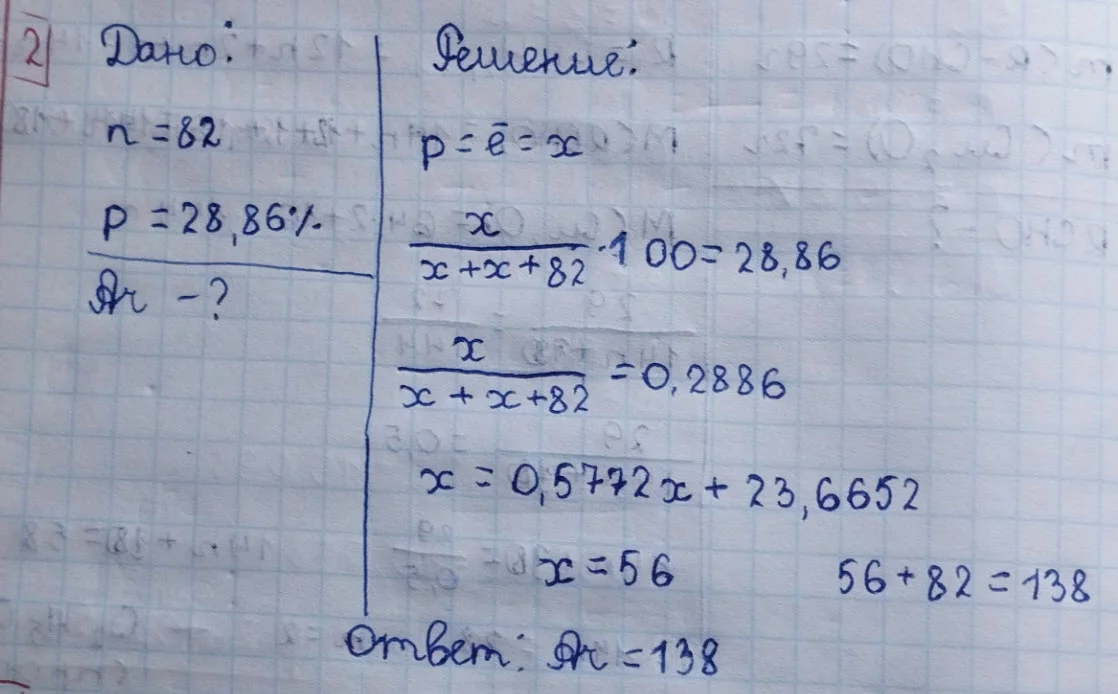 2 Дано:
n = 82
p = 28,86%
Ar - ?
Решение:
p = ē = x
x / (x + x + 82) · 100 = 28,86
x / (x + x + 82) = 0,2886
x = 0,5772x + 23,6652
x = 56
56 + 82 = 138
Ответ: Ar = 138